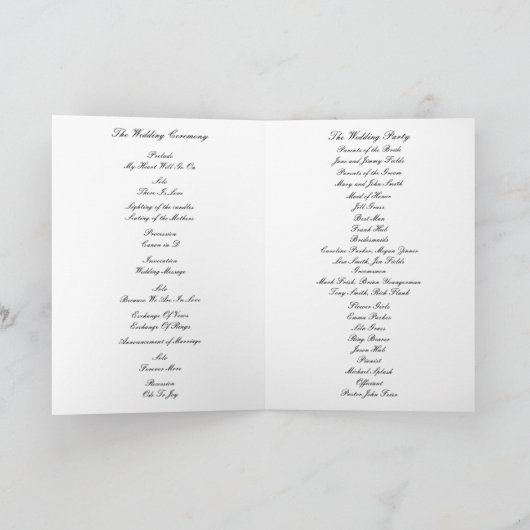 The Wedding Ceremony
Prelude
My Heart Will Go On
Solo
There Is Love
Lighting of the candles
Seating of the Mothers
Precession
Canon in D
Invocation
Wedding Message
Solo
Because We Are In Love
Exchange Of Vows
Exchange Of Rings
Announcement of Marriage
Solo
Forever More
Recession
Ode To Joy
The Wedding Party
Parents of the Bride
Jane and Jimmy Fields
Parents of the Groom
Mary and John Smith
Maid of Honor
Jill Grass
Best Man
Frank Hub
Bridesmaids
Caroline Parker, Megan Zinner
Lisa Smith, Jen Fields
Groomsmen
Mark Frish, Brian Youngerman
Tony Smith, Rich Flank
Flower Girls
Emma Parker
Lola Grass
Ring Bearer
Jason Hub
Pianist
Michael Splash
Officiant
Pastor John Frier